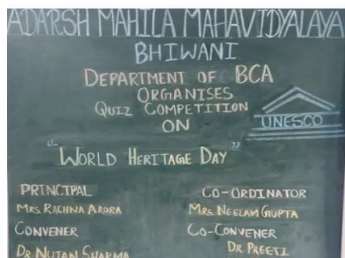 ADARSH MAHILA MAHAVIDYALAYA
BHIWANI
DEPARTMENT OF BCA
ORGANISES
QUIZ COMPETITION
ON
UNESCO
"WORLD HERITAGE DAY"
PRINCIPAL
MRS. RACHNA ARORA
CONVENER
DR NUTAN SHARMA
CO-ORDINATOR
MRS NEELAM GUPTA
CO-CONVENER
DR PREETI